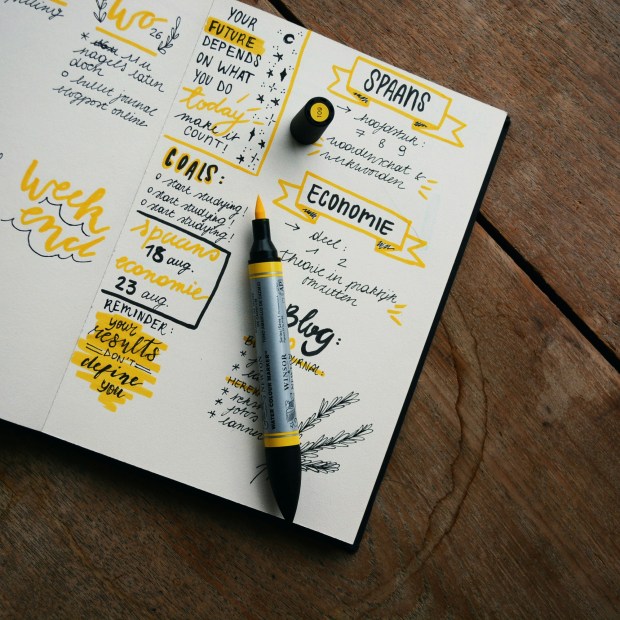 WO
26
nagels laten
doen
o bullet journal
blogpost online
week
end
YOUR
FUTURE
DEPENDS
ON WHAT
YOU DO
today
make it
COUNT!
GOALS:
o start studying!
o start studying!
o start studying!
spaans
18 aug.
economie
23 aug.
REMINDER:
your
results
DON'T
define
you
SPAANS
→ hoofdstuk:
7 8 9
woordenschat &
werkwoorden
ECONOMIE
→ deel:
1 2
theorie in praktijk
omzetten
Blog:
WINSOR
WATER COLOUR MARKER
109